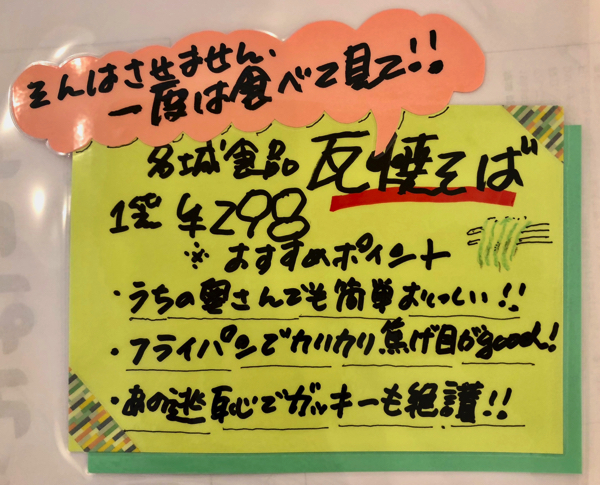 そんはさせません、
一度は食べて見て!!
名城食品 瓦焼そば
1袋 ¥298
※おすすめポイント
・うちの奥さんでも簡単おいしい!!
・フライパンでカリカリ焦げ目がgood!
・あの逃恥でガッキーも絶讃!!